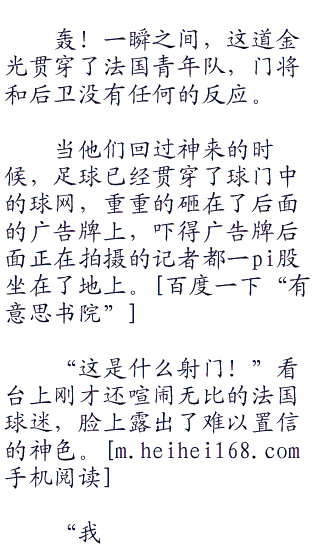 轰！一瞬之间，这道金
光贯穿了法国青年队，门将
和后卫没有任何的反应。
当他们回过神来的时
候，足球已经贯穿了球门中
的球网，重重的砸在了后面
的广告牌上，吓得广告牌后
面正在拍摄的记者都一pi股
坐在了地上。[百度一下“有
意思书院”]
“这是什么射门！”看
台上刚才还喧闹无比的法国
球迷，脸上露出了难以置信
的神色。[m.heihei168.com
手机阅读]
“我